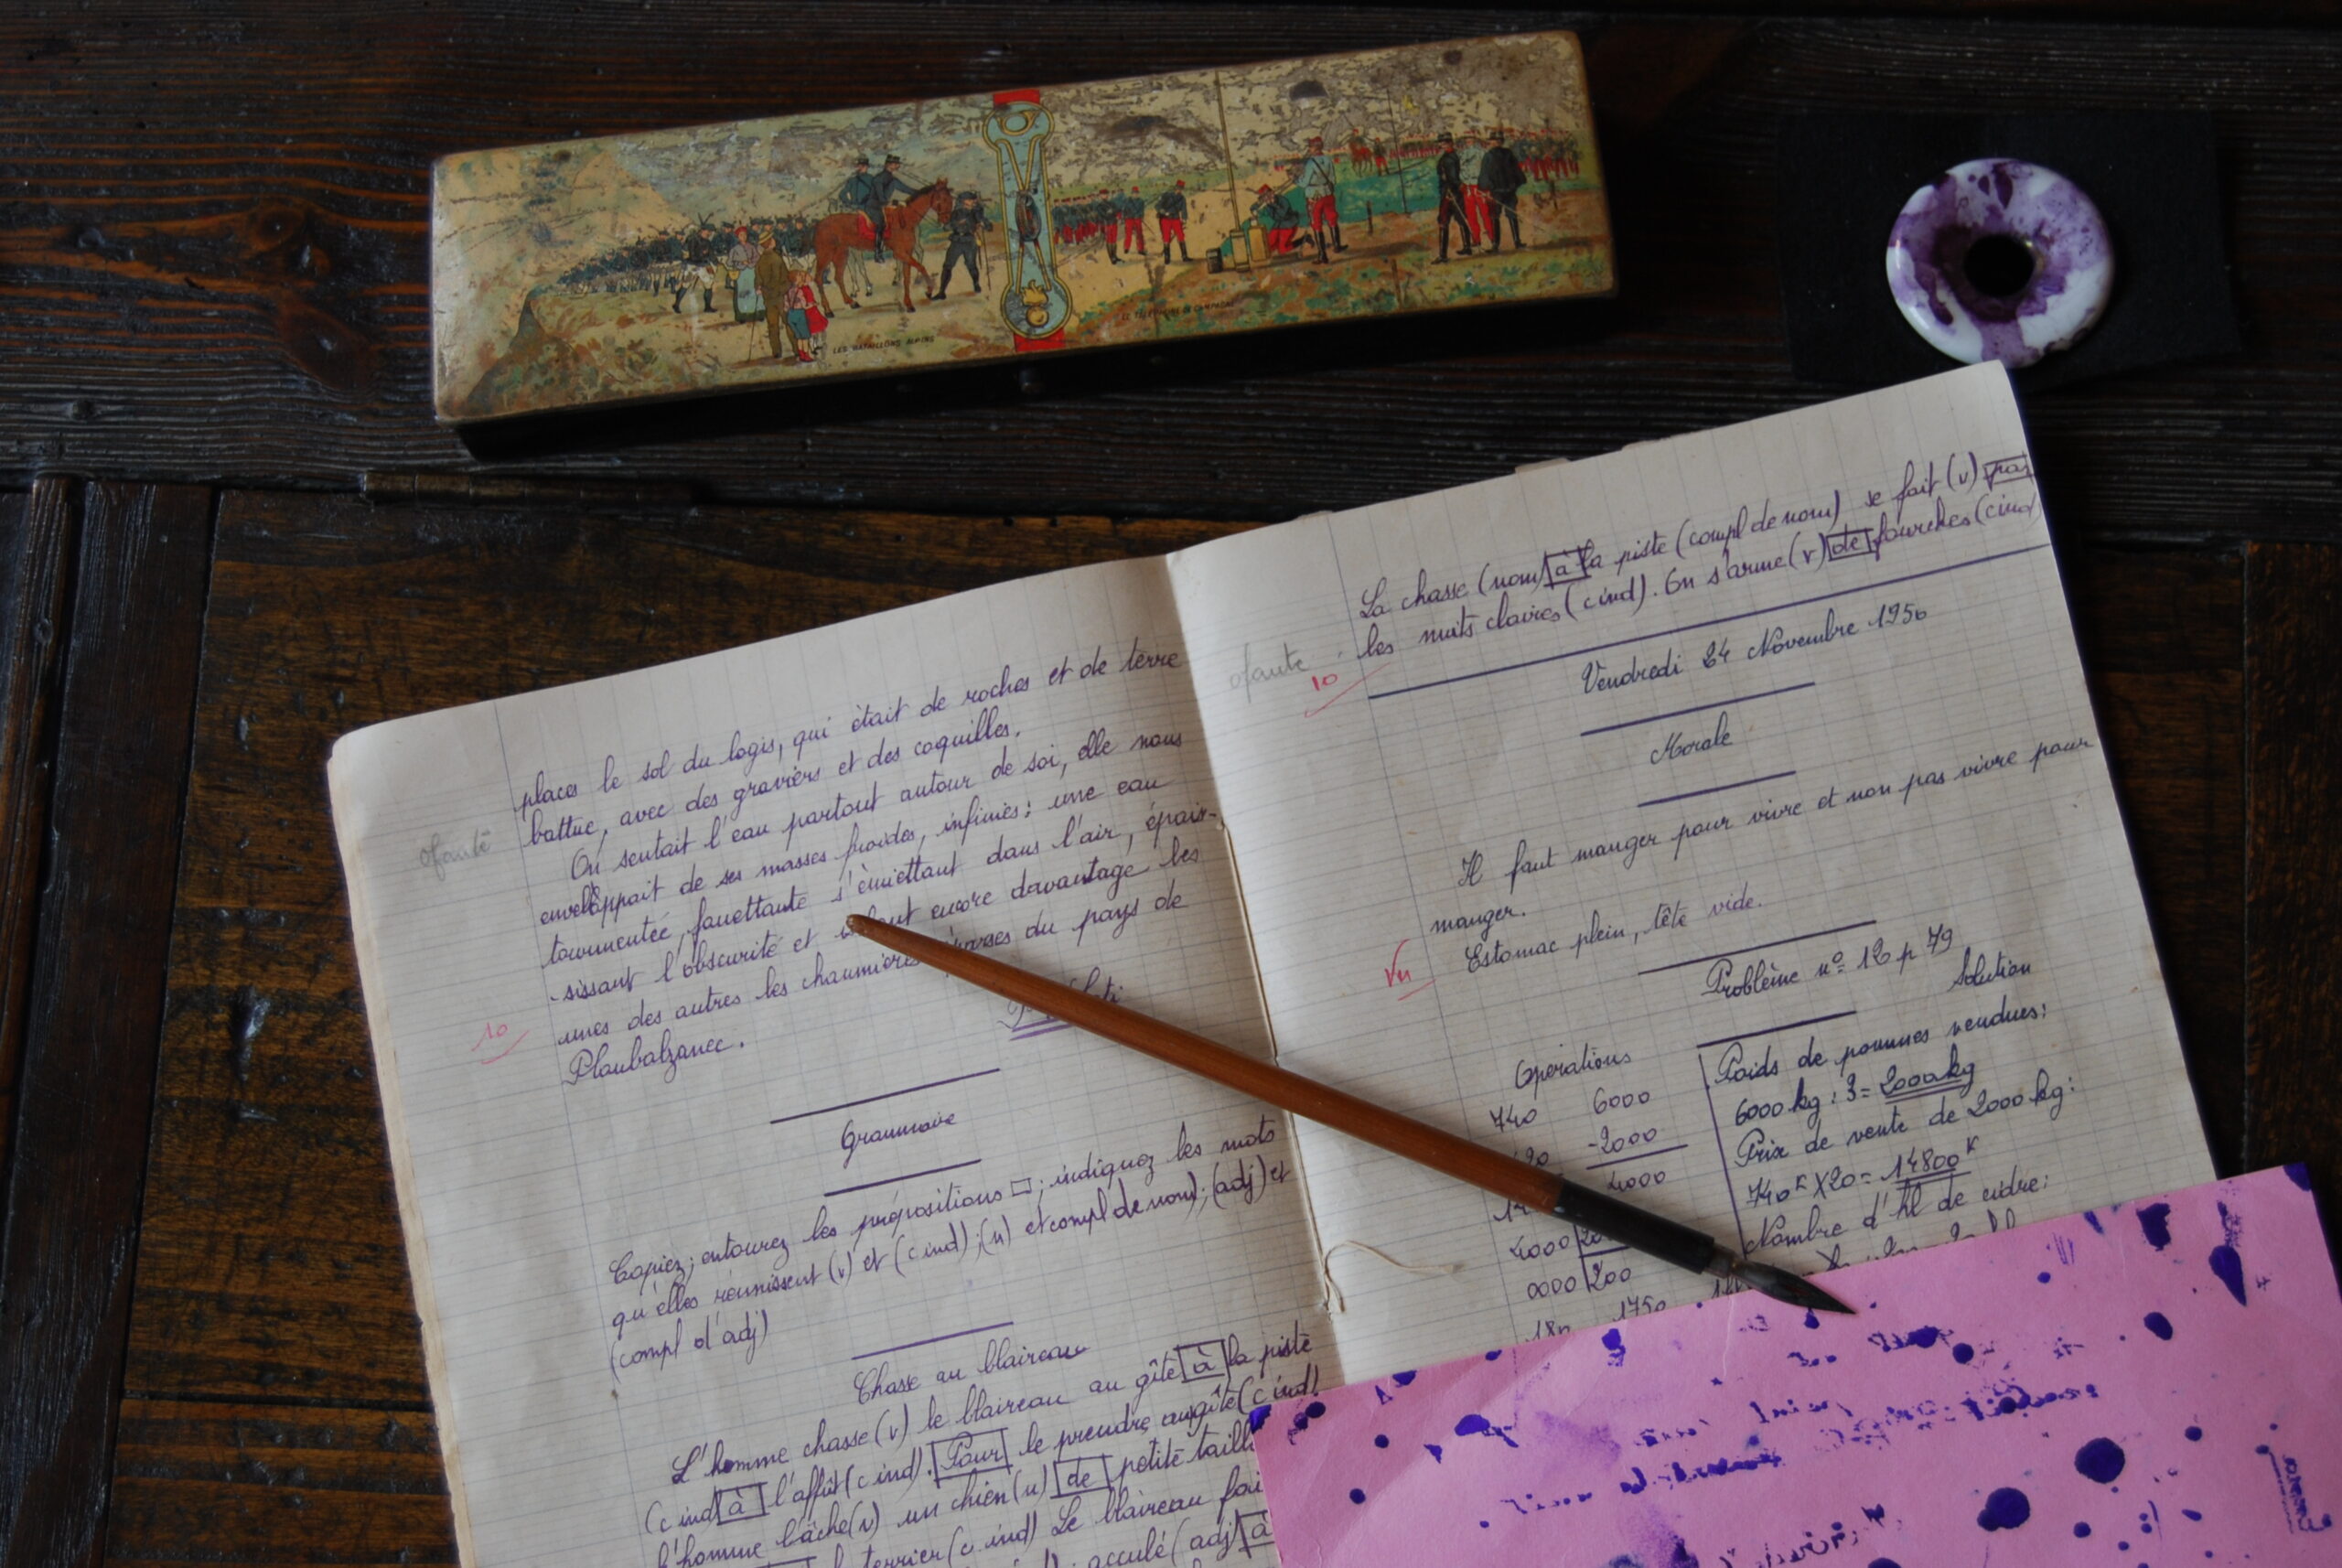 LES BATAILLONS ALPINS
LE TELEPHONE DE CAMPAGNE
places le sol du logis, qui était de roches et de terre
battue, avec des graviers et des coquilles.
On sentait l'eau partout autour de soi, elle nous
enveloppait de ses masses froides, infinies: une eau
0 faute
tourmentée, fouettante s'émiettant dans l'air, épais-
-sissant l'obscurité et encore davantage les
unes des autres les chaumières éparses du pays de
10
Ploubalzanec.
Grammaire
Copiez; entourez les prépositions □; indiquez les mots
qu'elles réunissent (v) et (c ind); (n) et compl de nom); (adj) et
(compl d'adj)
Chasse au blaireau
L'homme chasse (v) le blaireau au gîte à la piste
(c ind) à l'affût (c ind). Pour le prendre au gîte (c ind)
l'homme lâche (v) un chien (n) de petite taille
terrier (c ind) Le blaireau
acculé (adj) à
La chasse (nom) à la piste (compl de nom) se fait (v) par
les nuits claires (c ind). On s'arme (v) de fourches (c ind)
0 faute
10
Vendredi 24 Novembre 1950
Morale
Il faut manger pour vivre et non pas vivre pour
manger.
Estomac plein, tête vide.
Vu
Problème nº 120 p 79
Opérations Solution
740 6000 Poids de pommes vendues:
-2000 6000 kg : 3 = 2000 kg
4000 Prix de vente de 2000 kg:
740F X 20 = 14800F
4000 Nombre d'hl de cidre:
0000 200
1750